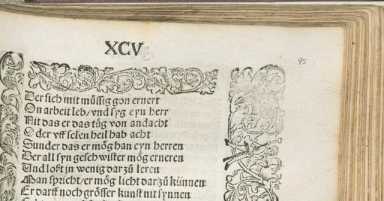 XCV
95
Der sich mit müssig gon ernert
On arbeit leb/und syg eyn herr
Nit das er das tüg von andacht
Oder uff selen heil hab acht
Sunder das er mög han eyn herren
Der all syn geschwister mög erneren
Und loßt jn wenig dar zů leren
Man spricht/er mög licht dar zů künnen
Er darff noch grösser kunst nit synnen